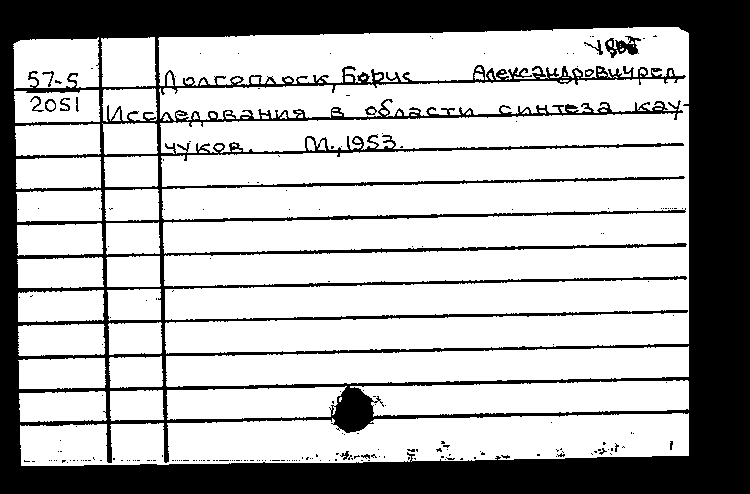 57-5
2051
Долгоплоск, Борис Александрович ред.
Исследования в области синтеза кау-
чуков. М., 1953.